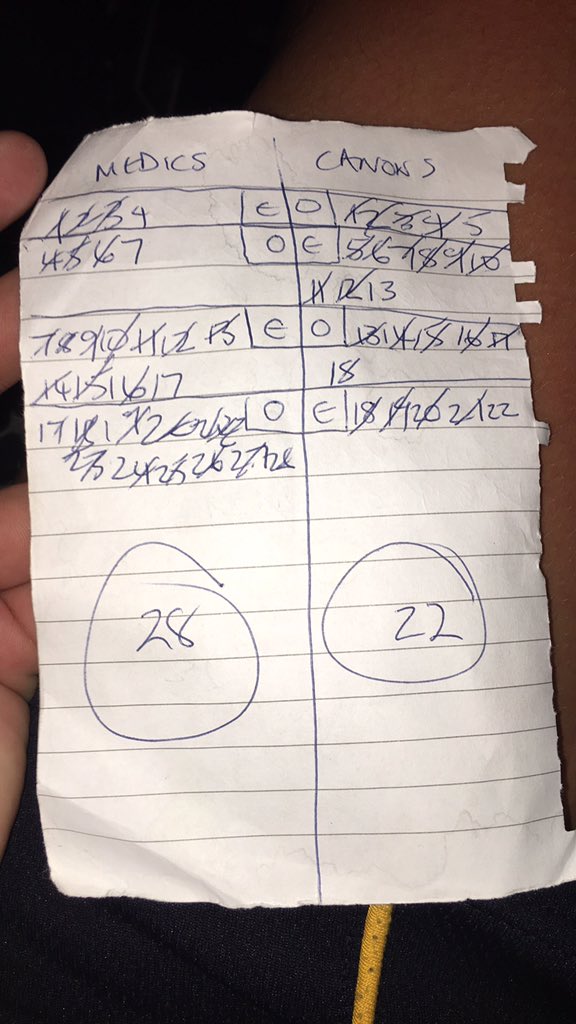 MEDICS CANONS
1 2 3 4 E O 1 2 3 4 5
4 5 6 7 O E 5 6 7 8 9 10
11 12 13
7 8 9 10 11 12 13 E O 13 14 15 16 17
14 15 16 17 18
17 18 O E 18 19 20 21 22
23 24 25 26 27 28
28 22